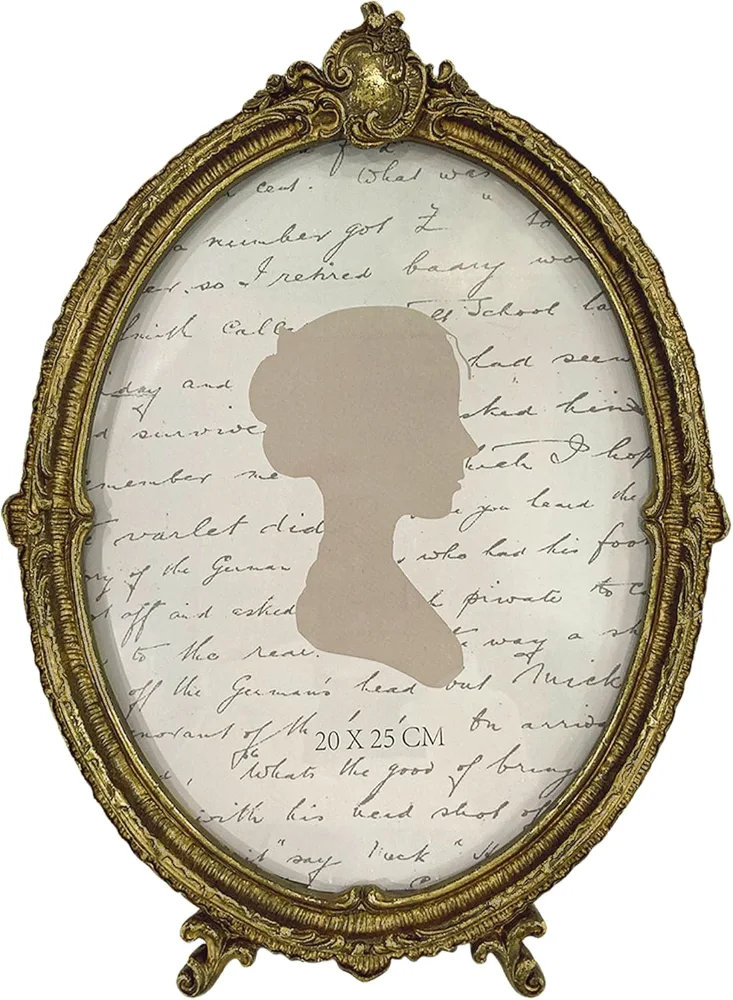 cent. What was
a number got Z " to
so I retired badly wo
Smith calle School la
day and had seen
d survive sked him
member me which I hop
varlet did you heard the
ry of the German who had his foo
t off and asked private to C
to the rear. way a sh
off the German's head but Nick
norant of th On arriva
20 X 25 CM
"Whats the good of bring
with his head shot of
" say Nick "